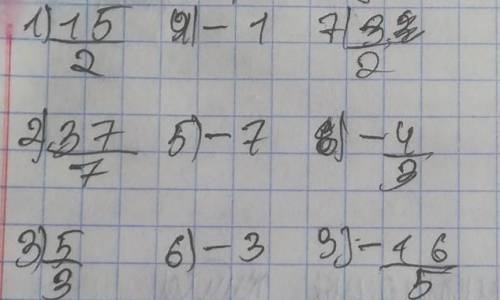 1) 15/2 4) - 1 7) 33/2
2) 37/7 5) - 7 8) - 4/3
3) 5/3 6) - 3 9) - 16/5